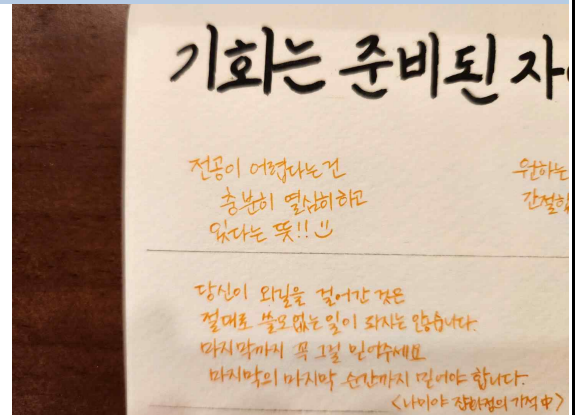 기회는 준비된 자
전공이 어렵다는건
충분히 열심히하고
있다는 뜻!!
원하는
간절함
당신이 외길을 걸어간 것은
절대로 쓸모없는 일이 되지는 않습니다.
마지막까지 꼭 그걸 믿어주세요
마지막의 마지막 순간까지 믿어야 합니다.
<나미야 잡화점의 기적 中>